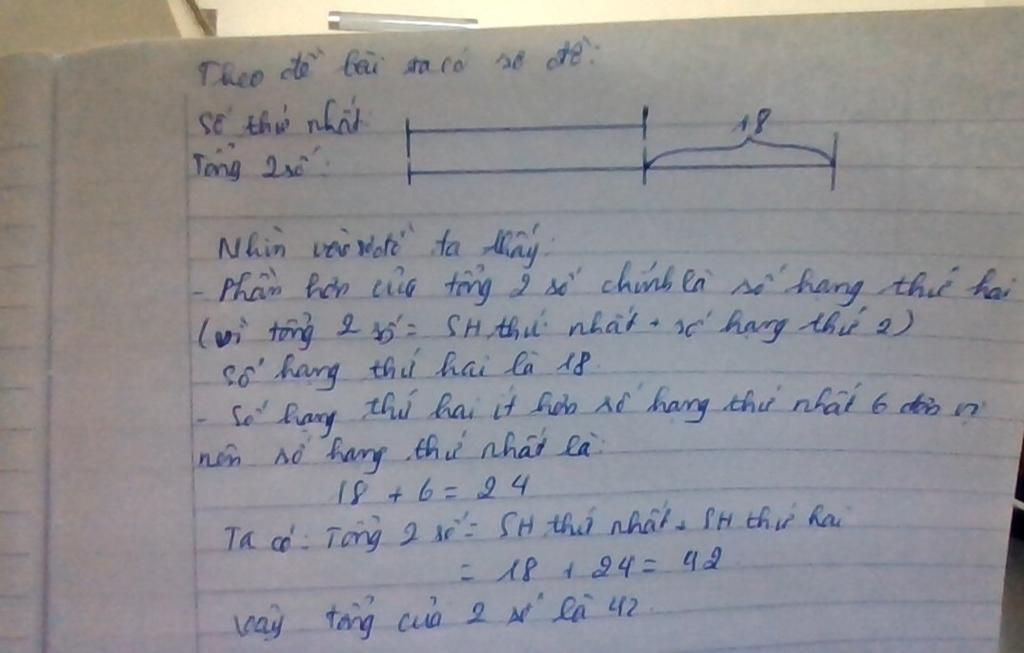 Theo đề bài ta có sơ đồ:
Số thứ nhất
18
Tổng 2 số:
Nhìn vào sơ đồ ta thấy:
- Phần hơn của tổng 2 số chính là số hạng thứ hai
(vì tổng 2 số = SH thứ nhất + số hạng thứ 2)
Số hạng thứ hai là 18
- Số hạng thứ hai ít hơn số hạng thứ nhất 6 đơn vị
nên số hạng thứ nhất là:
18 + 6 = 24
Ta có: Tổng 2 số = SH thứ nhất + SH thứ hai
= 18 + 24 = 42
Vậy tổng của 2 số là 42.